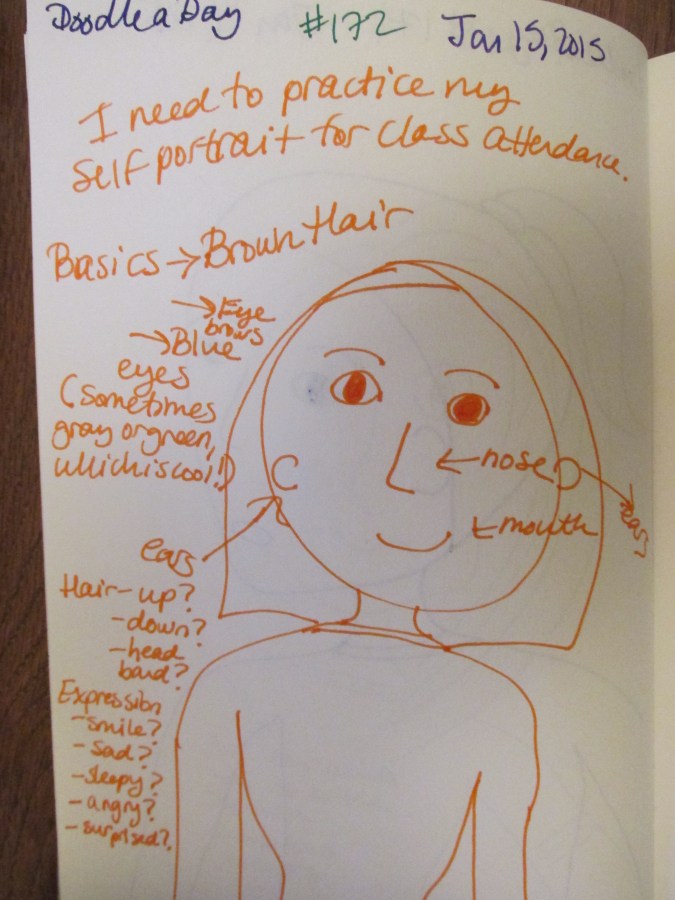 Doodle a Day #172 Jan 15, 2015
I need to practice my
self portrait for class attendance.
Basics → Brown Hair
→ Eye
brows
→ Blue
eyes
(sometimes
gray or green,
which is cool!)
← nose
ears
← mouth
ears
Hair - up?
- down?
- head
band?
Expression
- smile?
- sad?
- sleepy?
- angry?
- surprised?